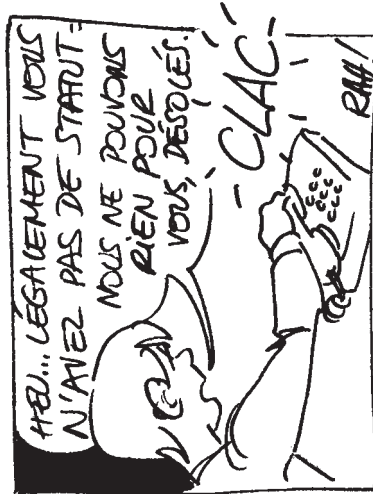 HEU... LÉGALEMENT VOUS
N'AVEZ PAS DE STATUT :
NOUS NE POUVONS
RIEN POUR
VOUS, DÉSOLÉS.
CLAC
RAH!